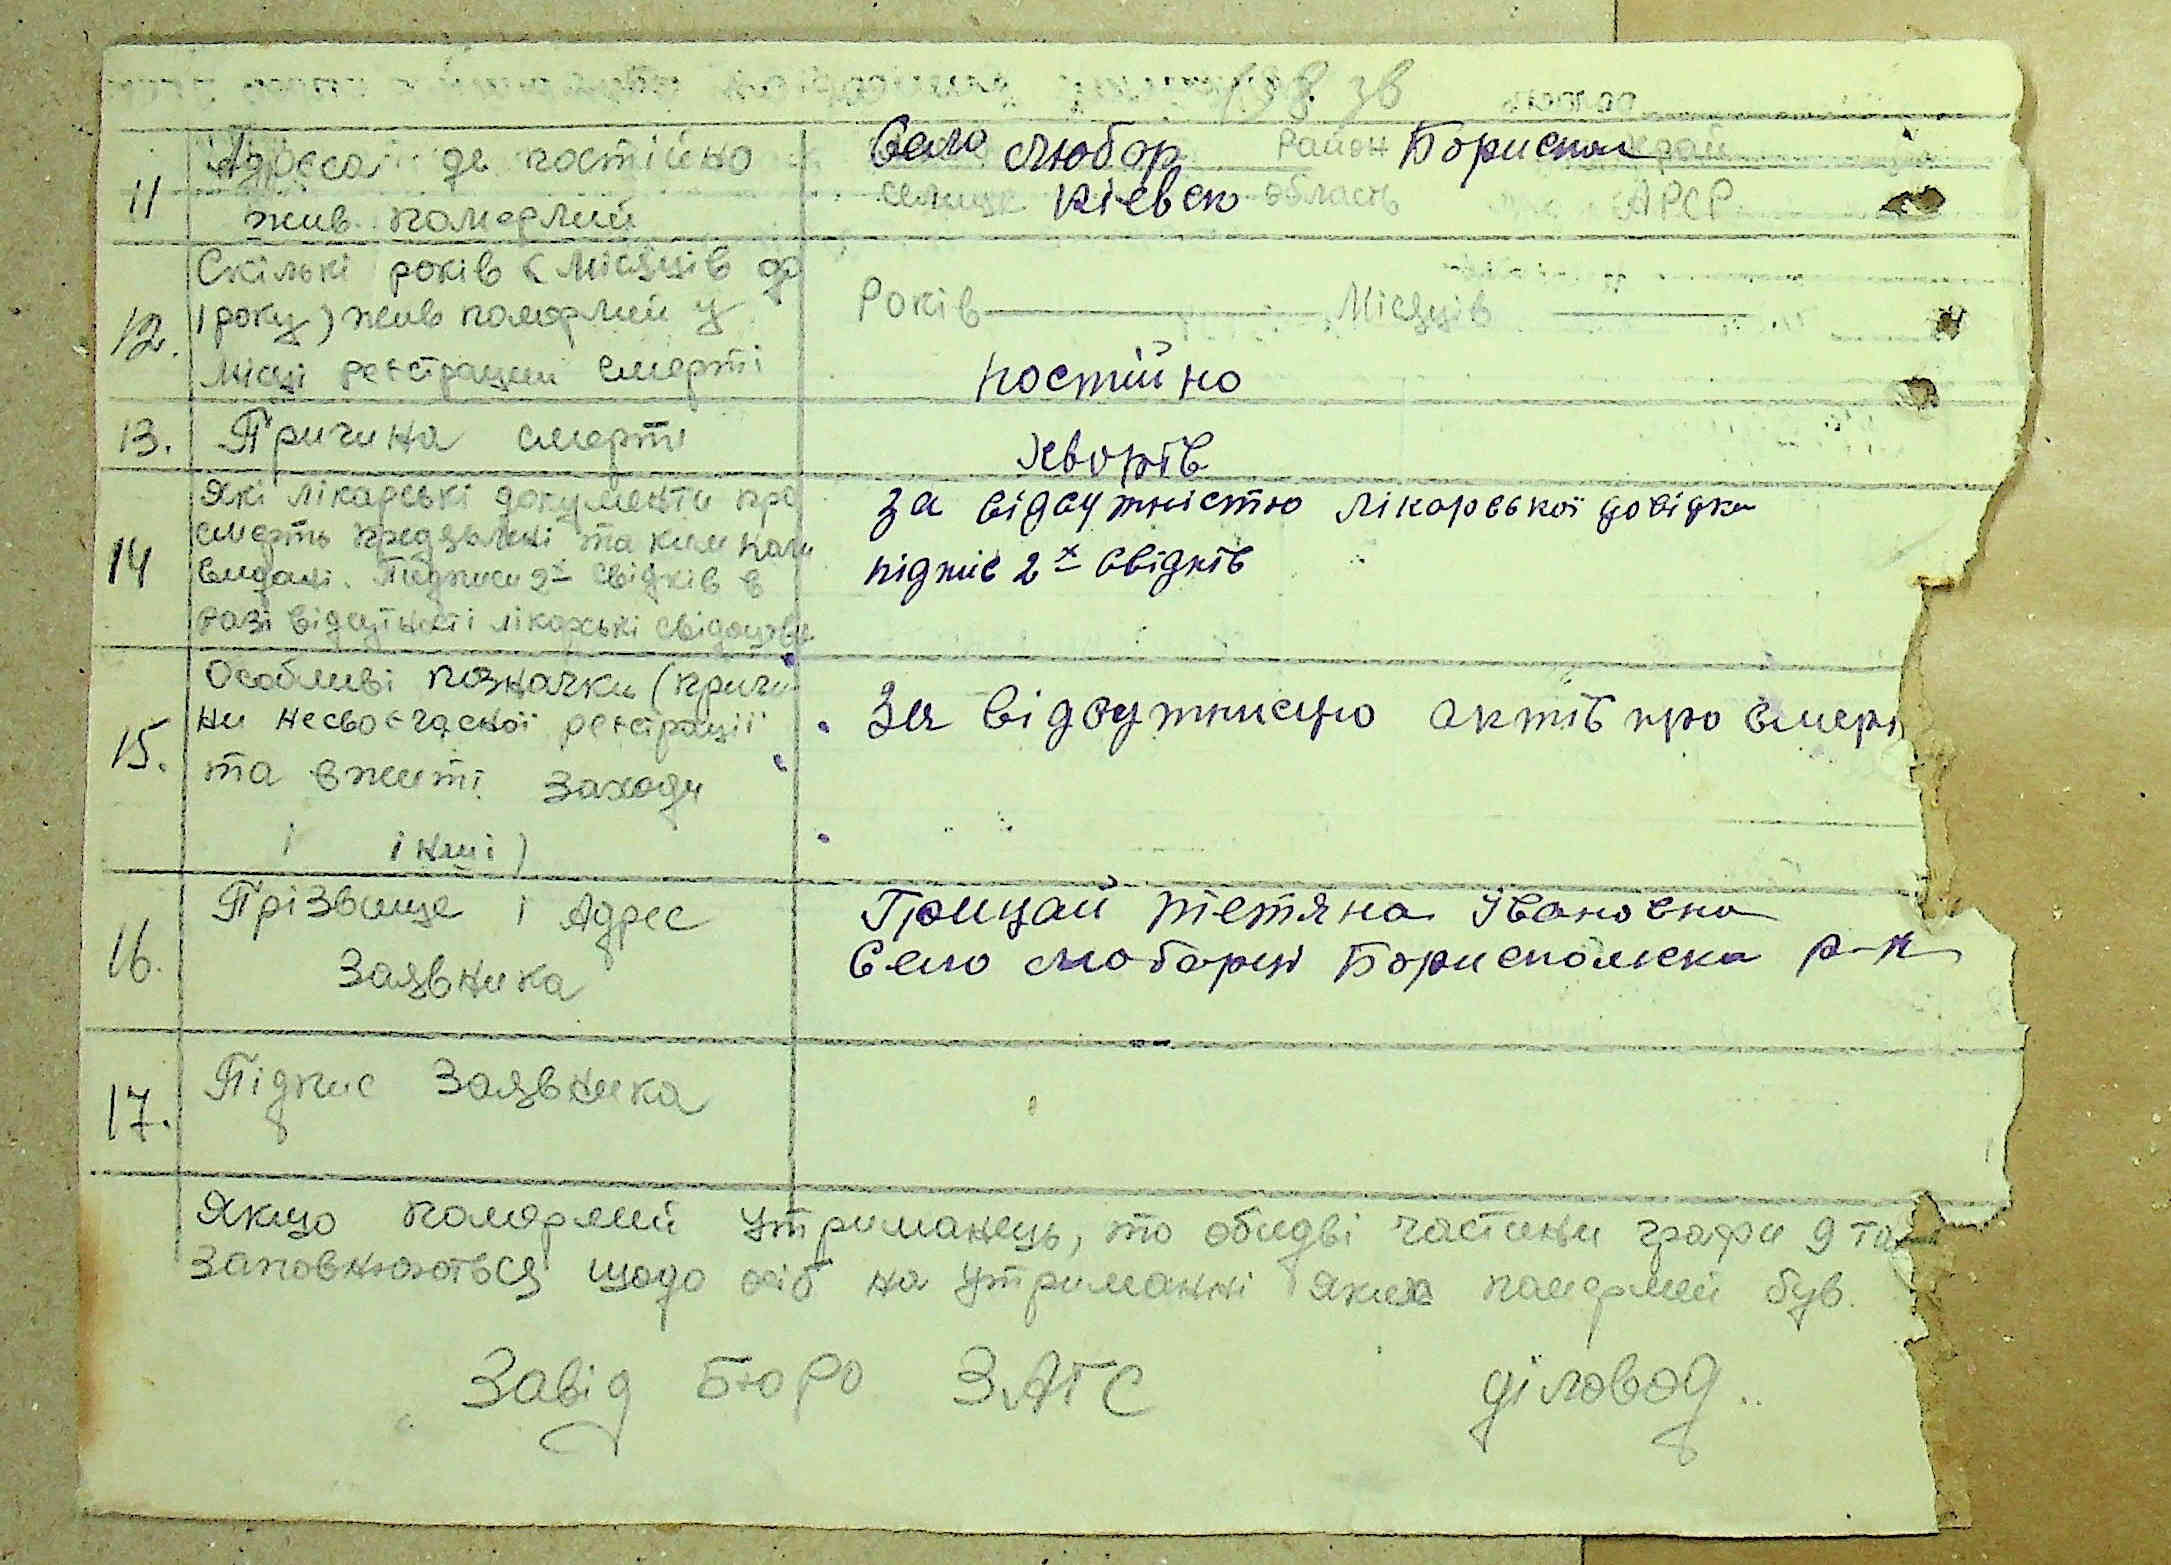 198 зв
11
Адреса де постійно
жив померлий
Село Любар Район Бориспол край
селище Кіевск область АРСР
12.
Скількі років (Місяців до
1 року) жив померлий у
місці регстрации смерті
Років , Місяців
постійно
13. Причина смерті
14
Які лікарські документи про
смерть предявлені та ким коли
видані. Підписи 2х свідків в
разі відсутності лікарські свідоцтва
за відсутністю лікарської довідки
підпис 2х свідків
15.
Особливі позначки (причи
ни несвоєчасної регстрації
та вжиті заходи
і інші)
За відсутнисцю актів про смерт
16.
Прізвище і Адрес
Заявника
Грицай Тетяна Івановна
Село Любарці Бориспольска р-н
17.
Підпис Заявника
Якщо померлий утриманець, то обидві частини графи 9 та
заповнюються щодо осіб на утриманні яких померлий був.
Завід Бюро ЗАГС діловод..